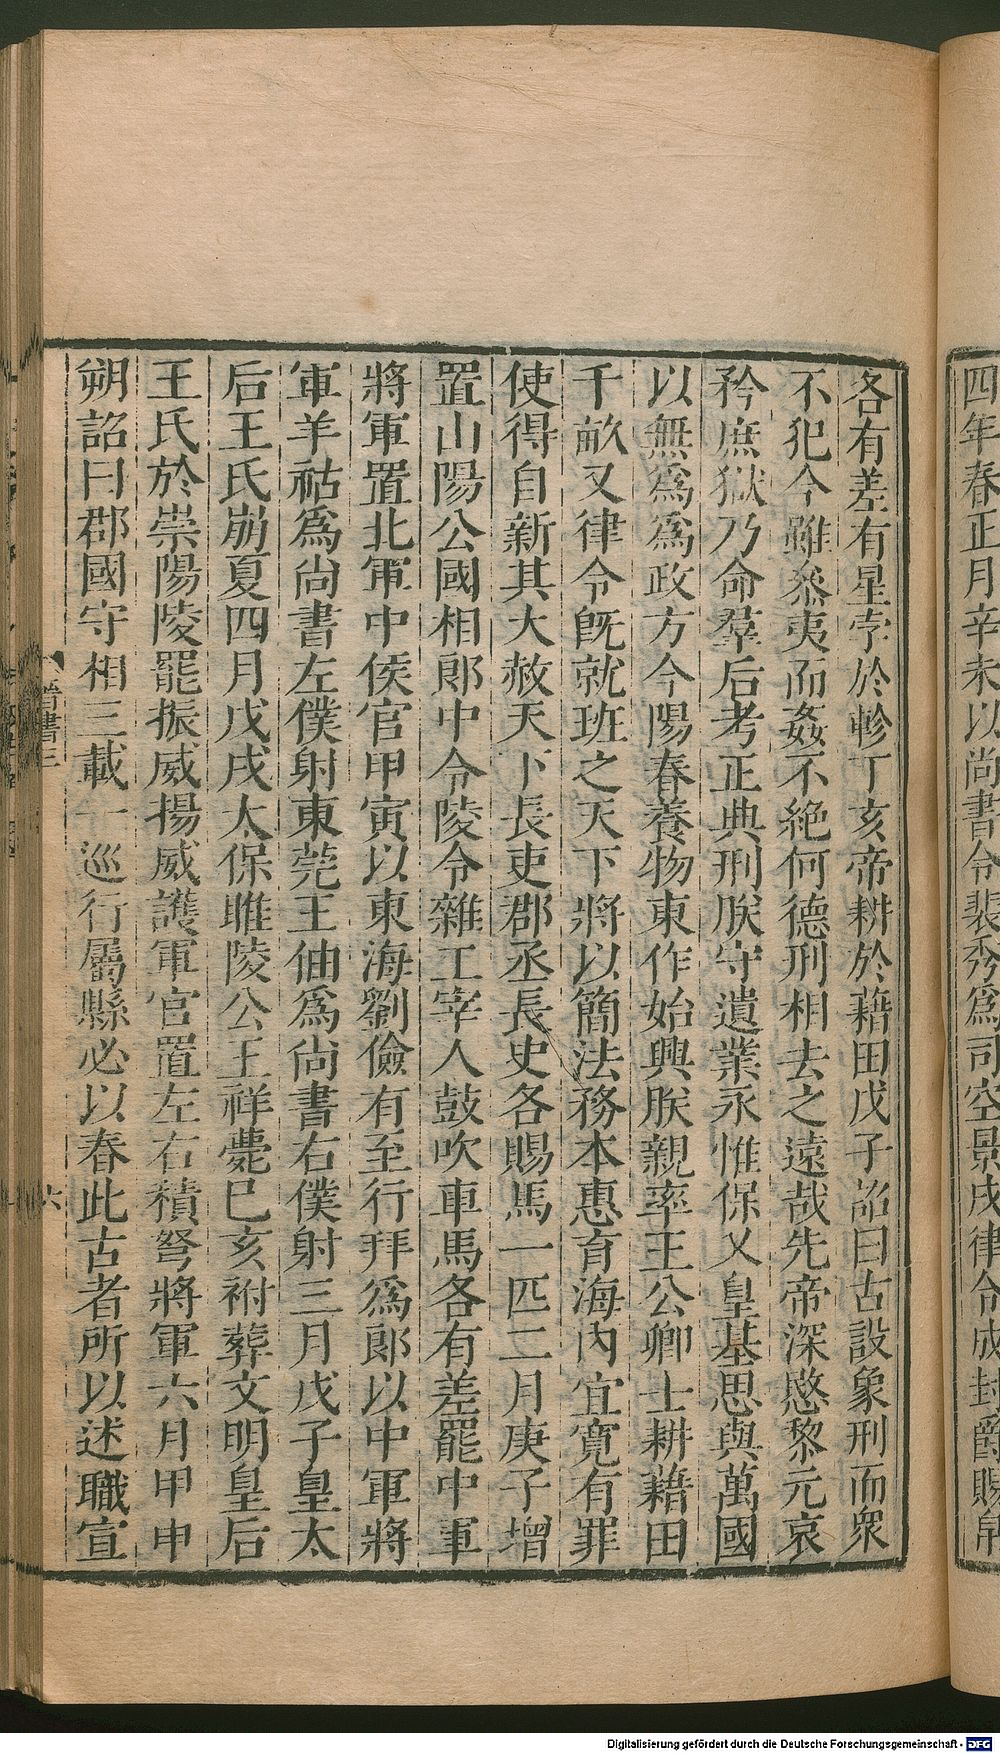 四年春正月辛未以尚書令裴秀爲司空景戌律令成封爵賜帛
各有差有星孛於軫丁亥帝耕於藉田戊子詔曰古設象刑而衆
不犯今雖參夷而姦不絶何德刑相去之遠哉先帝深愍黎元哀
矜庶獄乃命羣后考正典刑朕守遺業永惟保乂皇基思與萬國
以無爲爲政方今陽春養物東作始興朕親率王公卿士耕藉田
千畝又律令旣就班之天下將以簡法務本惠育海内宜寬有罪
使得自新其大赦天下長吏郡丞長史各賜馬一匹二月庚子增
置山陽公國相郎中令陵令雜工宰人鼓吹車馬各有差罷中軍
將軍置北軍中侯官甲寅以東海劉儉有至行拜爲郎以中軍將
軍羊祜爲尚書左僕射東莞王伷爲尚書右僕射三月戊子皇太
后王氏崩夏四月戊戌太保睢陵公王祥薨巳亥祔葬文明皇后
王氏於崇陽陵罷振威揚威護軍官置左右積弩將軍六月甲申
朔詔曰郡國守相三載一巡行屬縣必以春此古者所以述職宣
晉書三
六
Digitalisierung gefördert durch die Deutsche Forschungsgemeinschaft - DFG